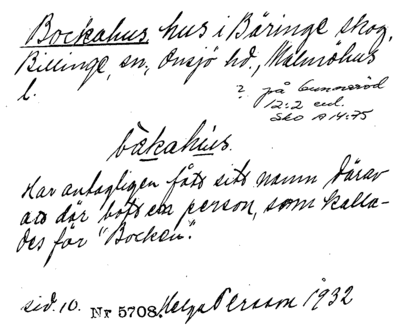 Bockahus hus i Bäringe skog,
Billinge, sn., Onsjö hd., Malmöhus
l.
? på Gunnaröd
12:2 enl.
Sko A 14:75
båkahus.
Har antagligen fått sitt namn därav
att där bott en person, som kalla-
des för "Bocken".
sid. 10. Nr 5708. Helga Persson 1932